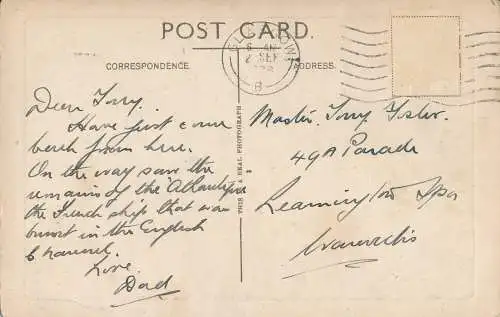 POST CARD.
CORRESPONDENCE.
ADDRESS.
6 AM
2 SEP
B
THIS IS A REAL PHOTOGRAPH
Dear Tony.
Have just come
back from here.
On the way saw the
remains of the "Atlantique
the French ship that was
burnt in the English
Channel.
Love
Dad
Master. Tony Foster.
49A Parade
Leamington Spa
Warwicks